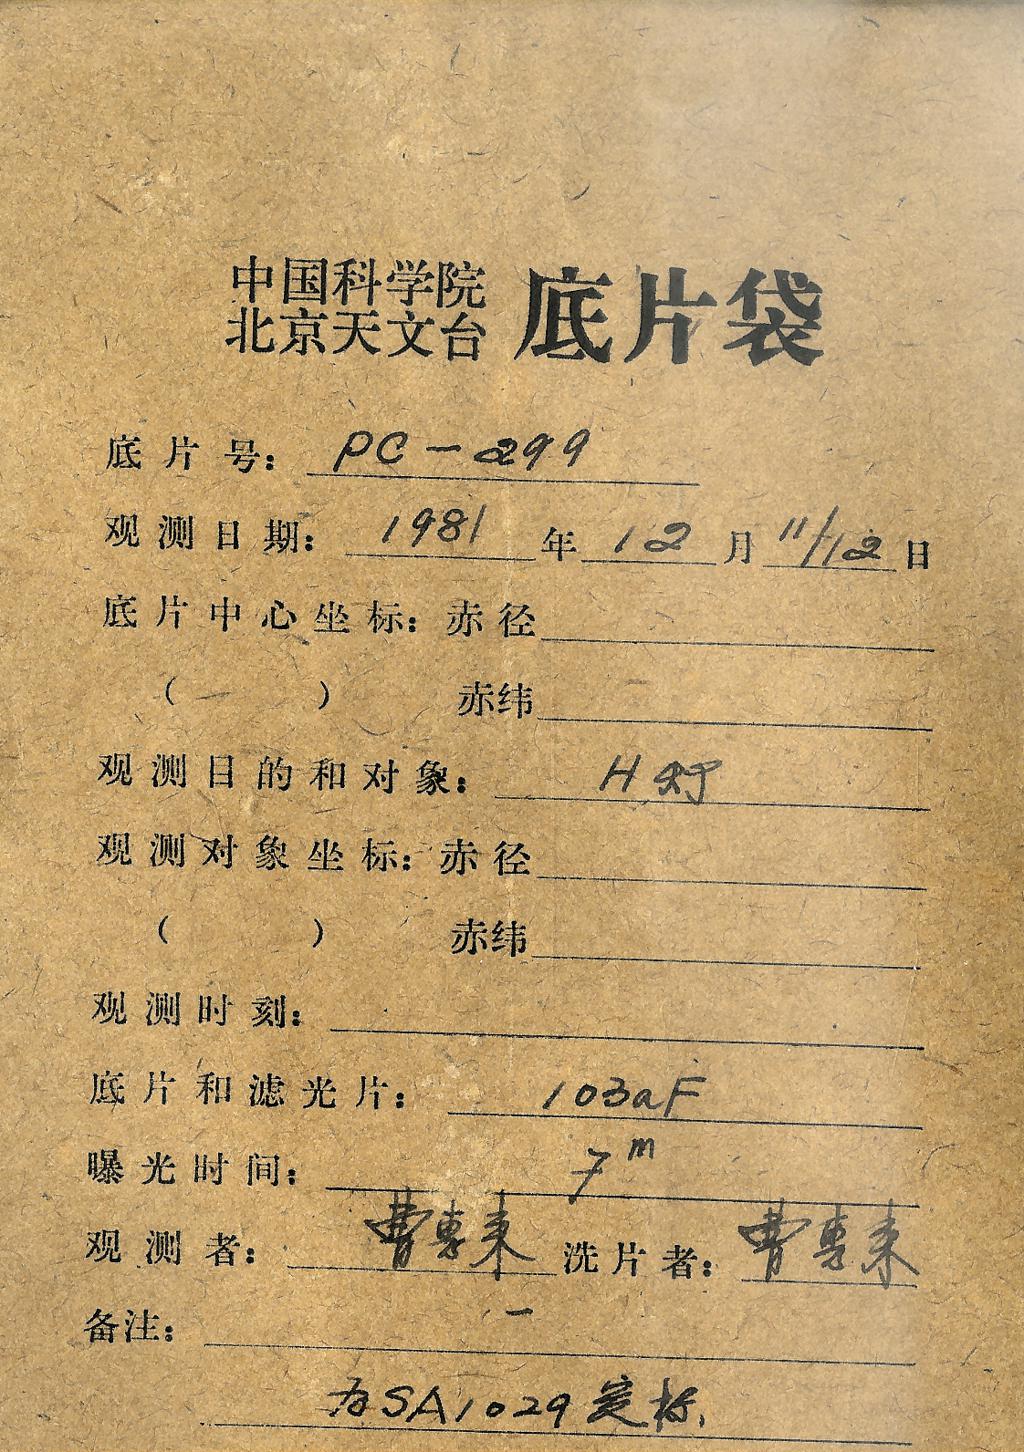 中国科学院
北京天文台 底片袋
底片号：PC-299
观测日期：1981年12月11/12日
底片中心坐标：赤径
（ ） 赤纬
观测目的和对象：H
观测对象坐标：赤径
（ ） 赤纬
观测时刻：
底片和滤光片：103aF
曝光时间：7m
观测者：曹惠来 洗片者：曹惠来
备注：
为SA1029定标.